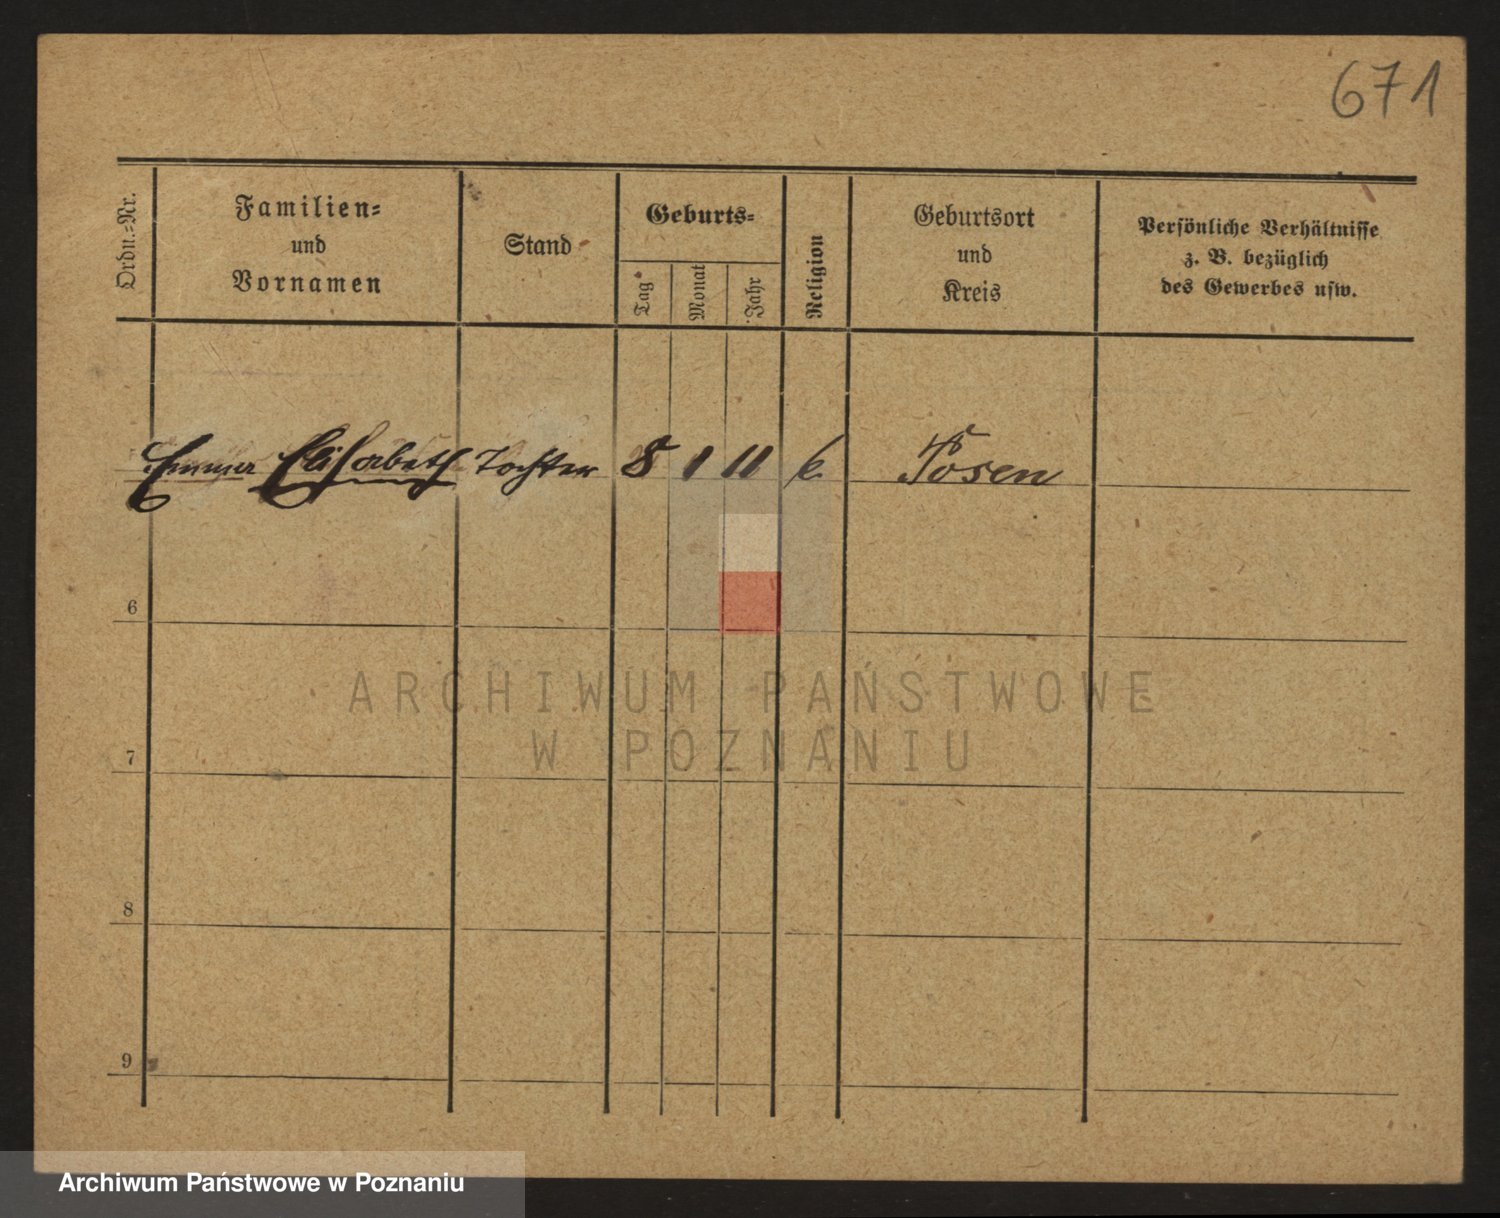 671
Ordn.-Nr.
Familien-
und
Vornamen
Stand
Geburts-
Tag
Monat
Jahr
Religion
Geburtsort
und
Kreis
Persönliche Verhältnisse
z. B. bezüglich
des Gewerbes usw.
Emma Elisabeth Tochter 8 1 11 Posen
6
ARCHIWUM PAŃSTWOWE
W POZNANIU
7
8
9
Archiwum Państwowe w Poznaniu